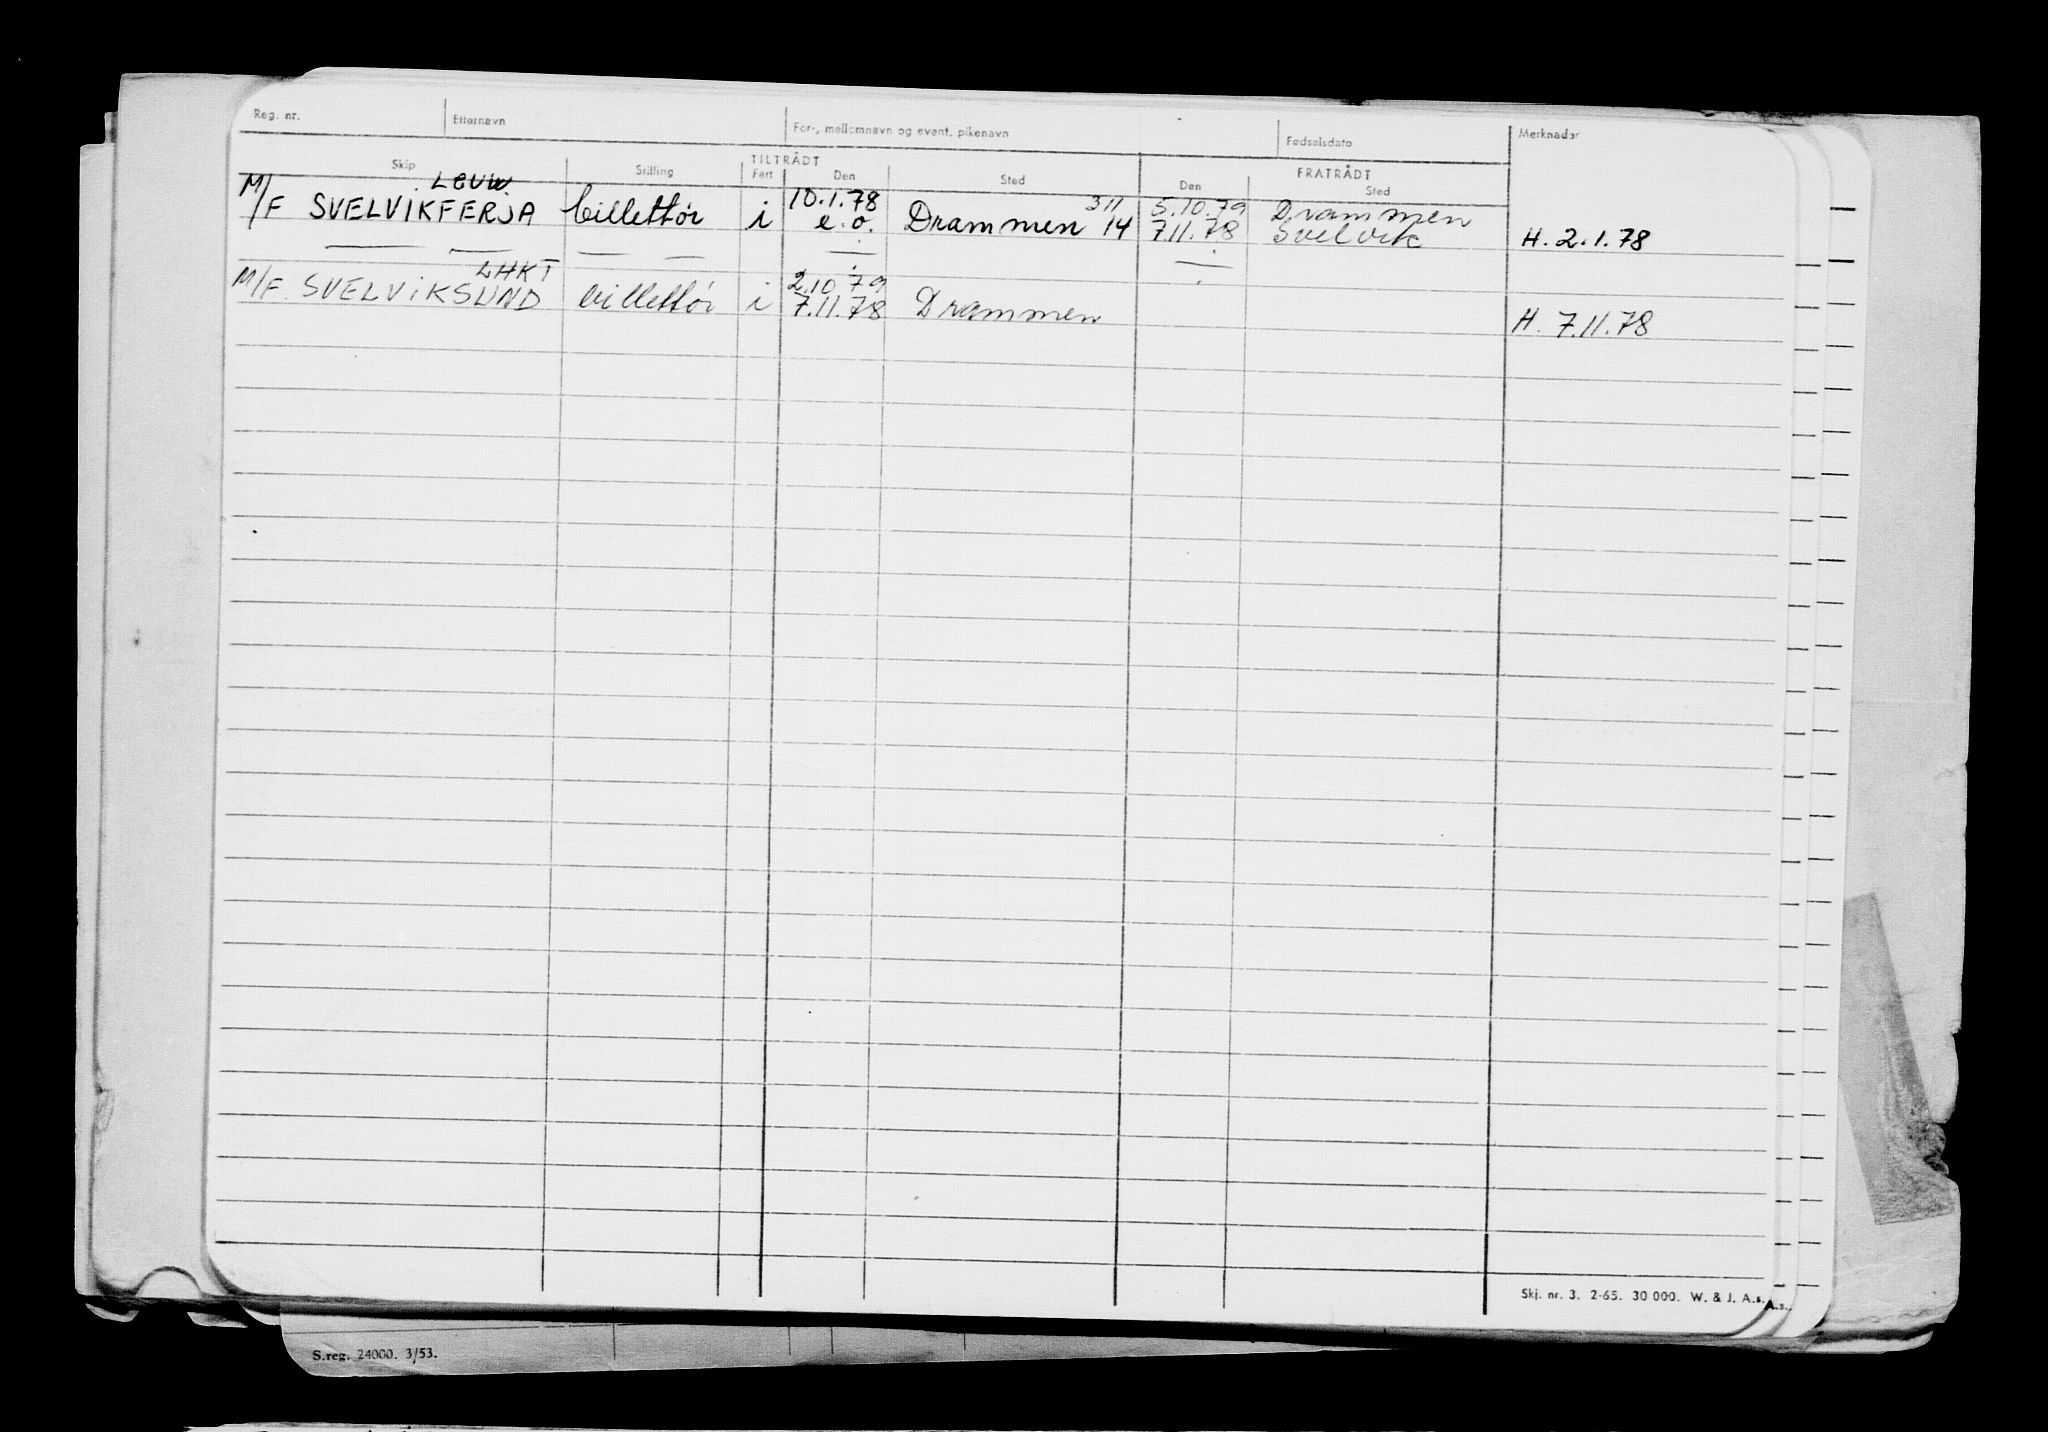 Reg. nr. Etternavn For-, mellomnavn og event. pikenavn Fødselsdato Merknader
TILTRÅDT FRATRÅDT
Skip Stilling Fart Den Sted Den Sted
LEUW 10.1.78 311 5.10.79 Drammen
M/F SVELVIKFERJA billettør i e.o. Drammen 14 7.11.78 Svelvik H. 2.1.78
LHKT 2.10 79
M/F SVELVIKSUND billettør i 7.11.78 Drammen H. 7.11.78
Skj. nr. 3. 2-65. 30 000. W. & J. A.s.
A.s.
S.reg. 24000. 3/53.